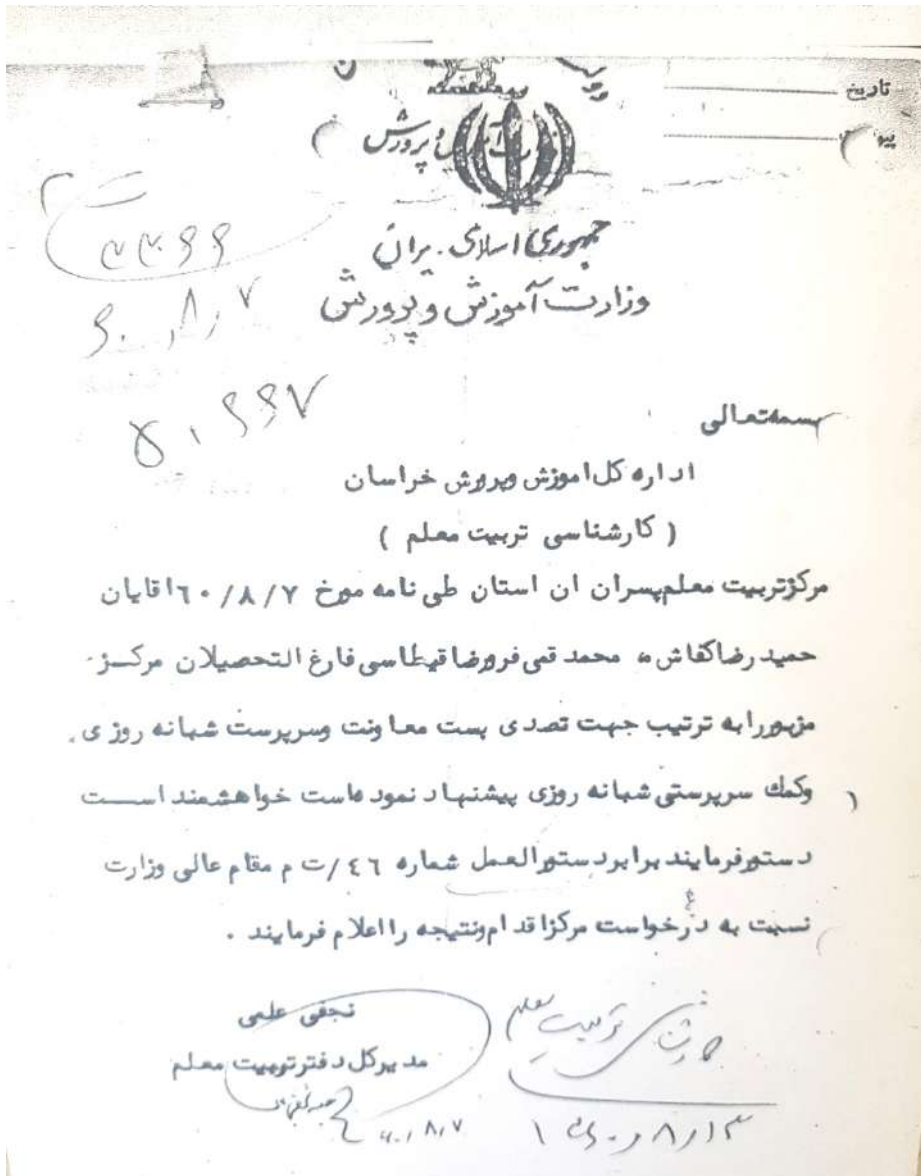 تاریخ
آموزش و پرورش
جمهوری اسلامی ایران
وزارت آموزش و پرورش
۶۰/۸/۷
۵۰۶۶۷
بسمه‌تعالی
اداره کل اموزش وپرورش خراسان
( کارشناسی تربیت معلم )
مرکزتربیت معلم‌پسران ان استان طی نامه مورخ ۶۰/۸/۷ اقایان
حمید رضاکفاش، محمد قمی فرورضا قیطاسی فارغ التحصیلان مرکز
مزبوررا به ترتیب جهت تصدی پست معاونت وسرپرست شبانه روزی
وکمك سرپرستی شبانه روزی پیشنهاد نموده‌است خواهشمند است
دستورفرمایند برابر دستورالعمل شماره ٤٦/ت م مقام عالی وزارت
نسبت به درخواست مرکزاقدام‌ونتیجه را اعلام فرمایند .
نجفی علمی
مدیرکل دفترتربیت معلم
۶۰/۸/۷
کارشناسی تربیت معلم
۶۰/۸/۱۳